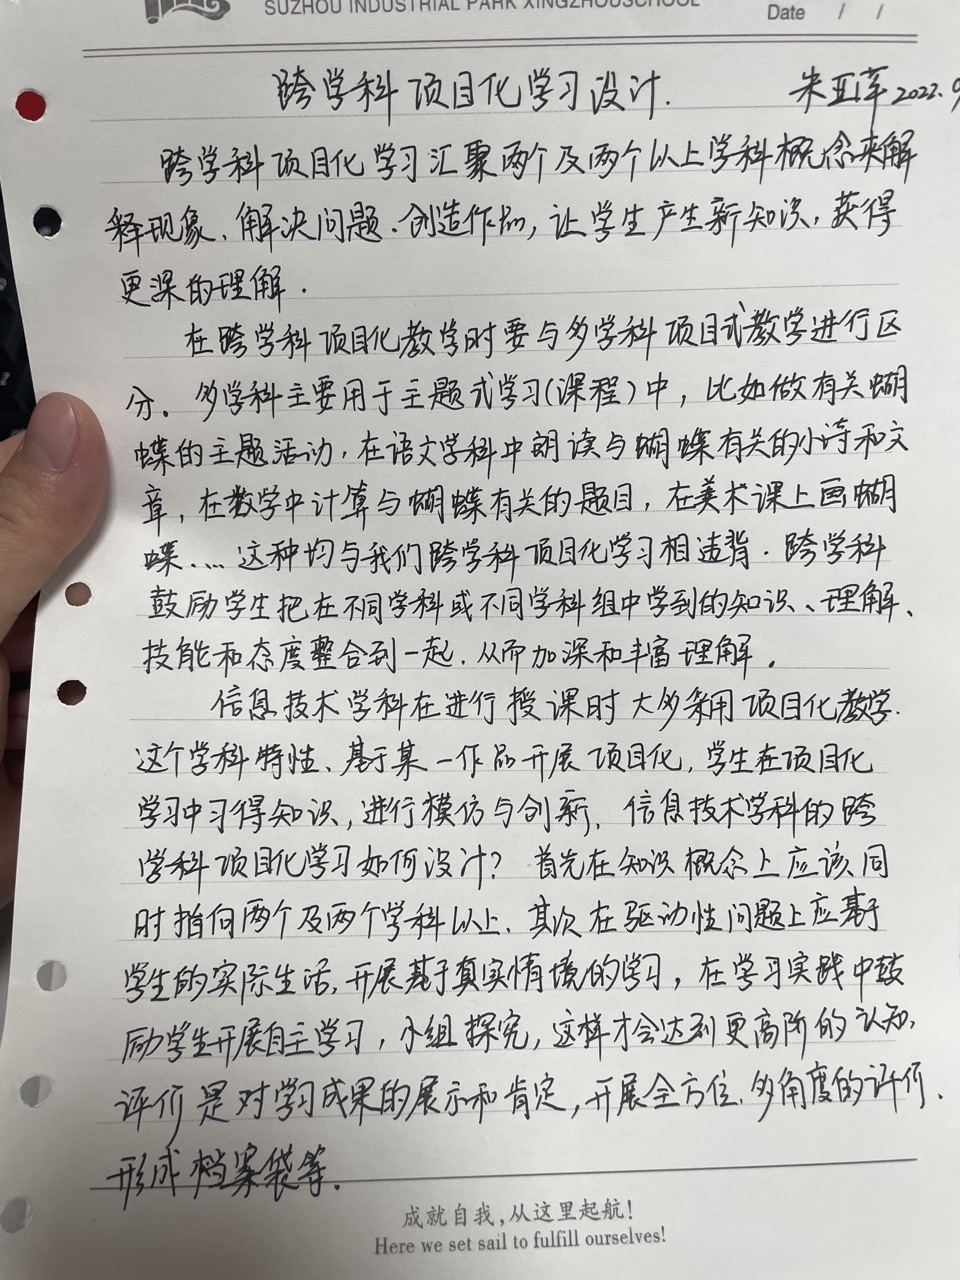 SUZHOU INDUSTRIAL PARK XINGZHOUSCHOOL
Date / /
跨学科项目化学习设计. 朱亚萍 2022.9
跨学科项目化学习汇聚两个及两个以上学科概念来解
释现象、解决问题、创造作品,让学生产生新知识,获得
更深的理解.
在跨学科项目化教学时要与多学科项目式教学进行区
分。多学科主要用于主题式学习(课程)中,比如做有关蝴
蝶的主题活动,在语文学科中朗读与蝴蝶有关的小诗和文
章,在数学中计算与蝴蝶有关的题目,在美术课上画蝴
蝶……这种均与我们跨学科项目化学习相违背.跨学科
鼓励学生把在不同学科或不同学科组中学到的知识、理解、
技能和态度整合到一起.从而加深和丰富理解。
信息技术学科在进行授课时大多采用项目化教学.
这个学科特性、基于某一作品开展项目化,学生在项目化
学习中习得知识,进行模仿与创新.信息技术学科的跨
学科项目化学习如何设计?首先在知识概念上应该同
时指向两个及两个学科以上.其次在驱动性问题上应基于
学生的实际生活,开展基于真实情境的学习,在学习实践中鼓
励学生开展自主学习,小组探究,这样才会达到更高阶的认知,
评价是对学习成果的展示和肯定,开展全方位、多角度的评价、
形成档案袋等.
成就自我,从这里起航!
Here we set sail to fulfill ourselves!